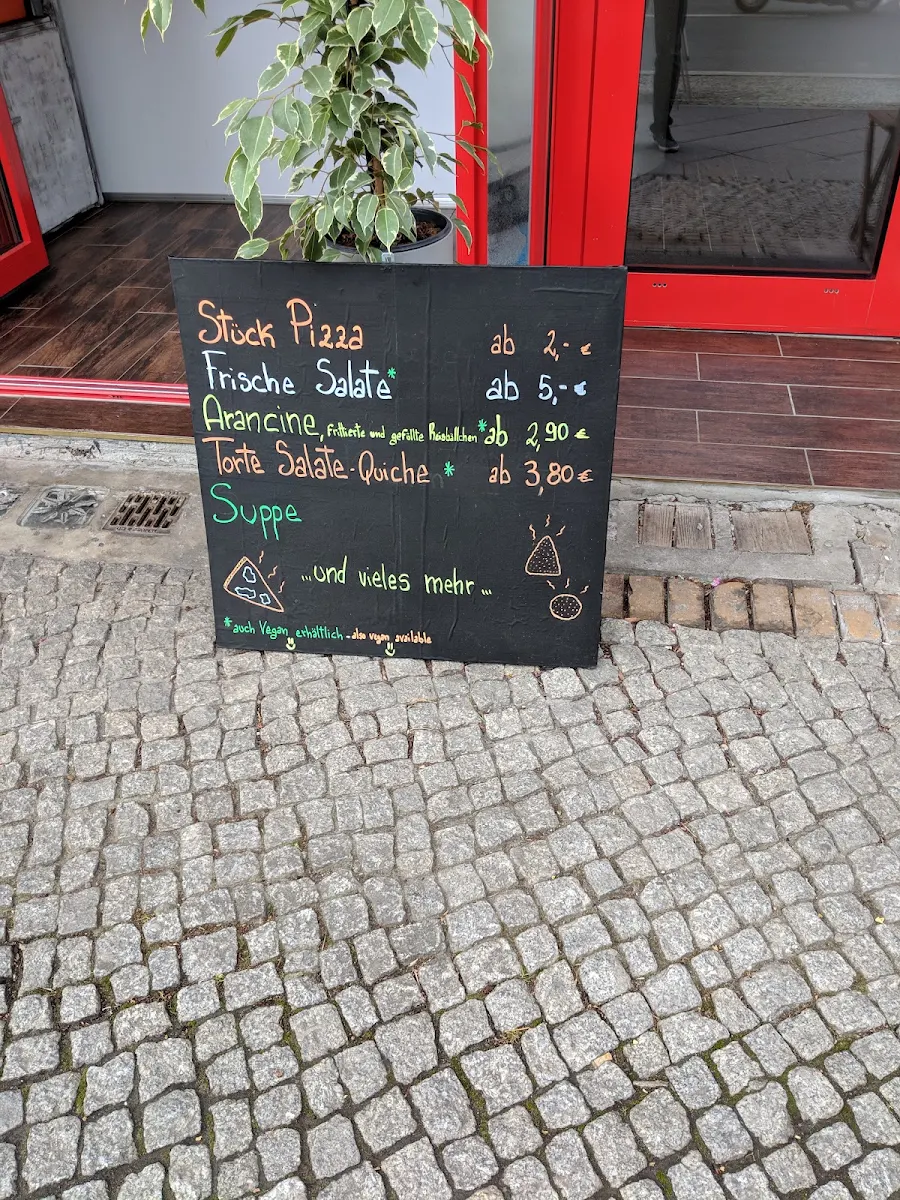 Stück Pizza ab 2,- €
Frische Salate* ab 5,- €
Arancine, frittierte und gefüllte Reisbällchen *ab 2,90 €
Torte Salate-Quiche * ab 3,80 €
Suppe
...und vieles mehr...
*auch Vegan erhältlich - also vegan available